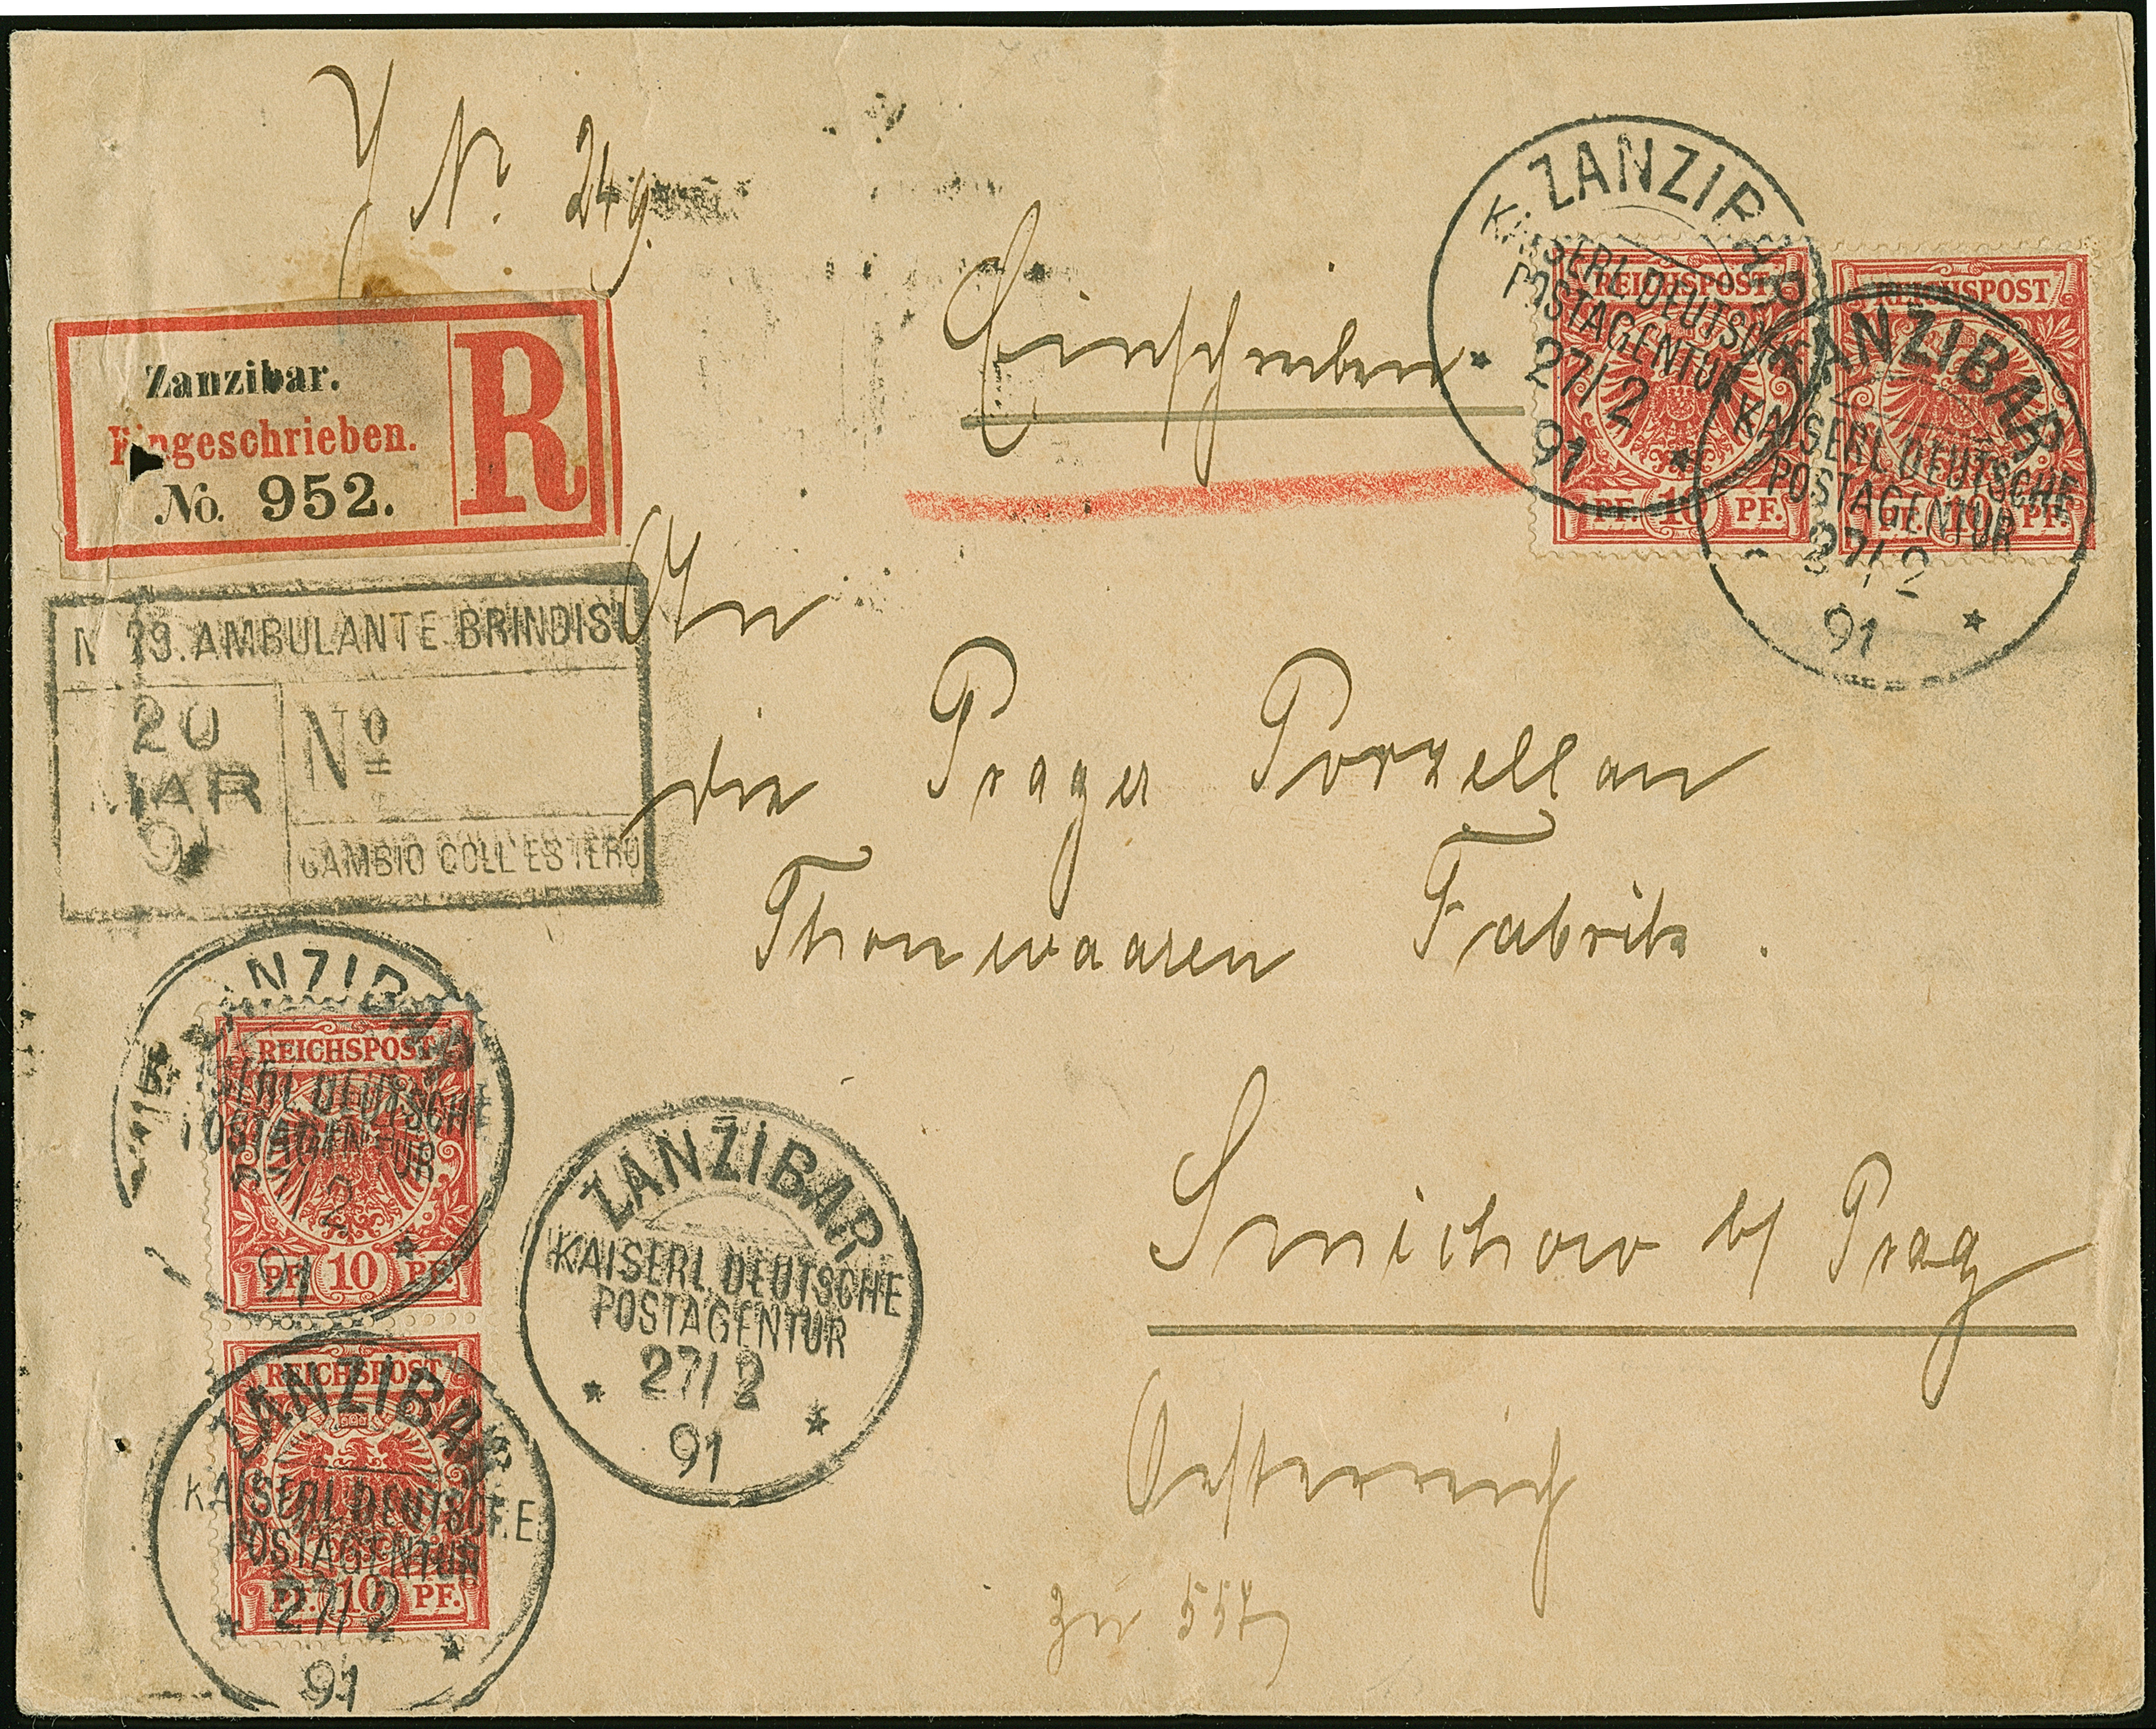 J. Nr. 249.
Einschreiben
Zanzibar.
Eingeschrieben.
No. 952.
R
ZANZIBAR
KAISERL. DEUTSCHE
POSTAGENTUR
27/2
91
REICHSPOST
PF. 10 PF.
ZANZIBAR
KAISERL. DEUTSCHE
POSTAGENTUR
27/2
91
REICHSPOST
PF. 10 PF.
An
die Prager Porzellan
Thonwaaren Fabrik.
Smichow b/ Prag
Oesterreich
N 29. AMBULANTE BRINDISI
20
MAR
91
Nº
CAMBIO COLL'ESTERO
ZANZIBAR
KAISERL. DEUTSCHE
POSTAGENTUR
27/2
91
REICHSPOST
PF. 10 PF.
ZANZIBAR
KAISERL. DEUTSCHE
POSTAGENTUR
27/2
91
ZANZIBAR
KAISERL. DEUTSCHE
POSTAGENTUR
27/2
91
REICHSPOST
PF. 10 PF.
zu